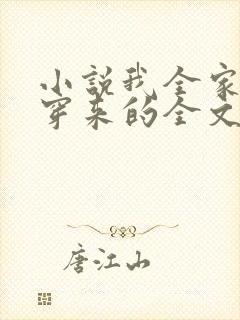 小说我全家
穿来的全文
唐江山